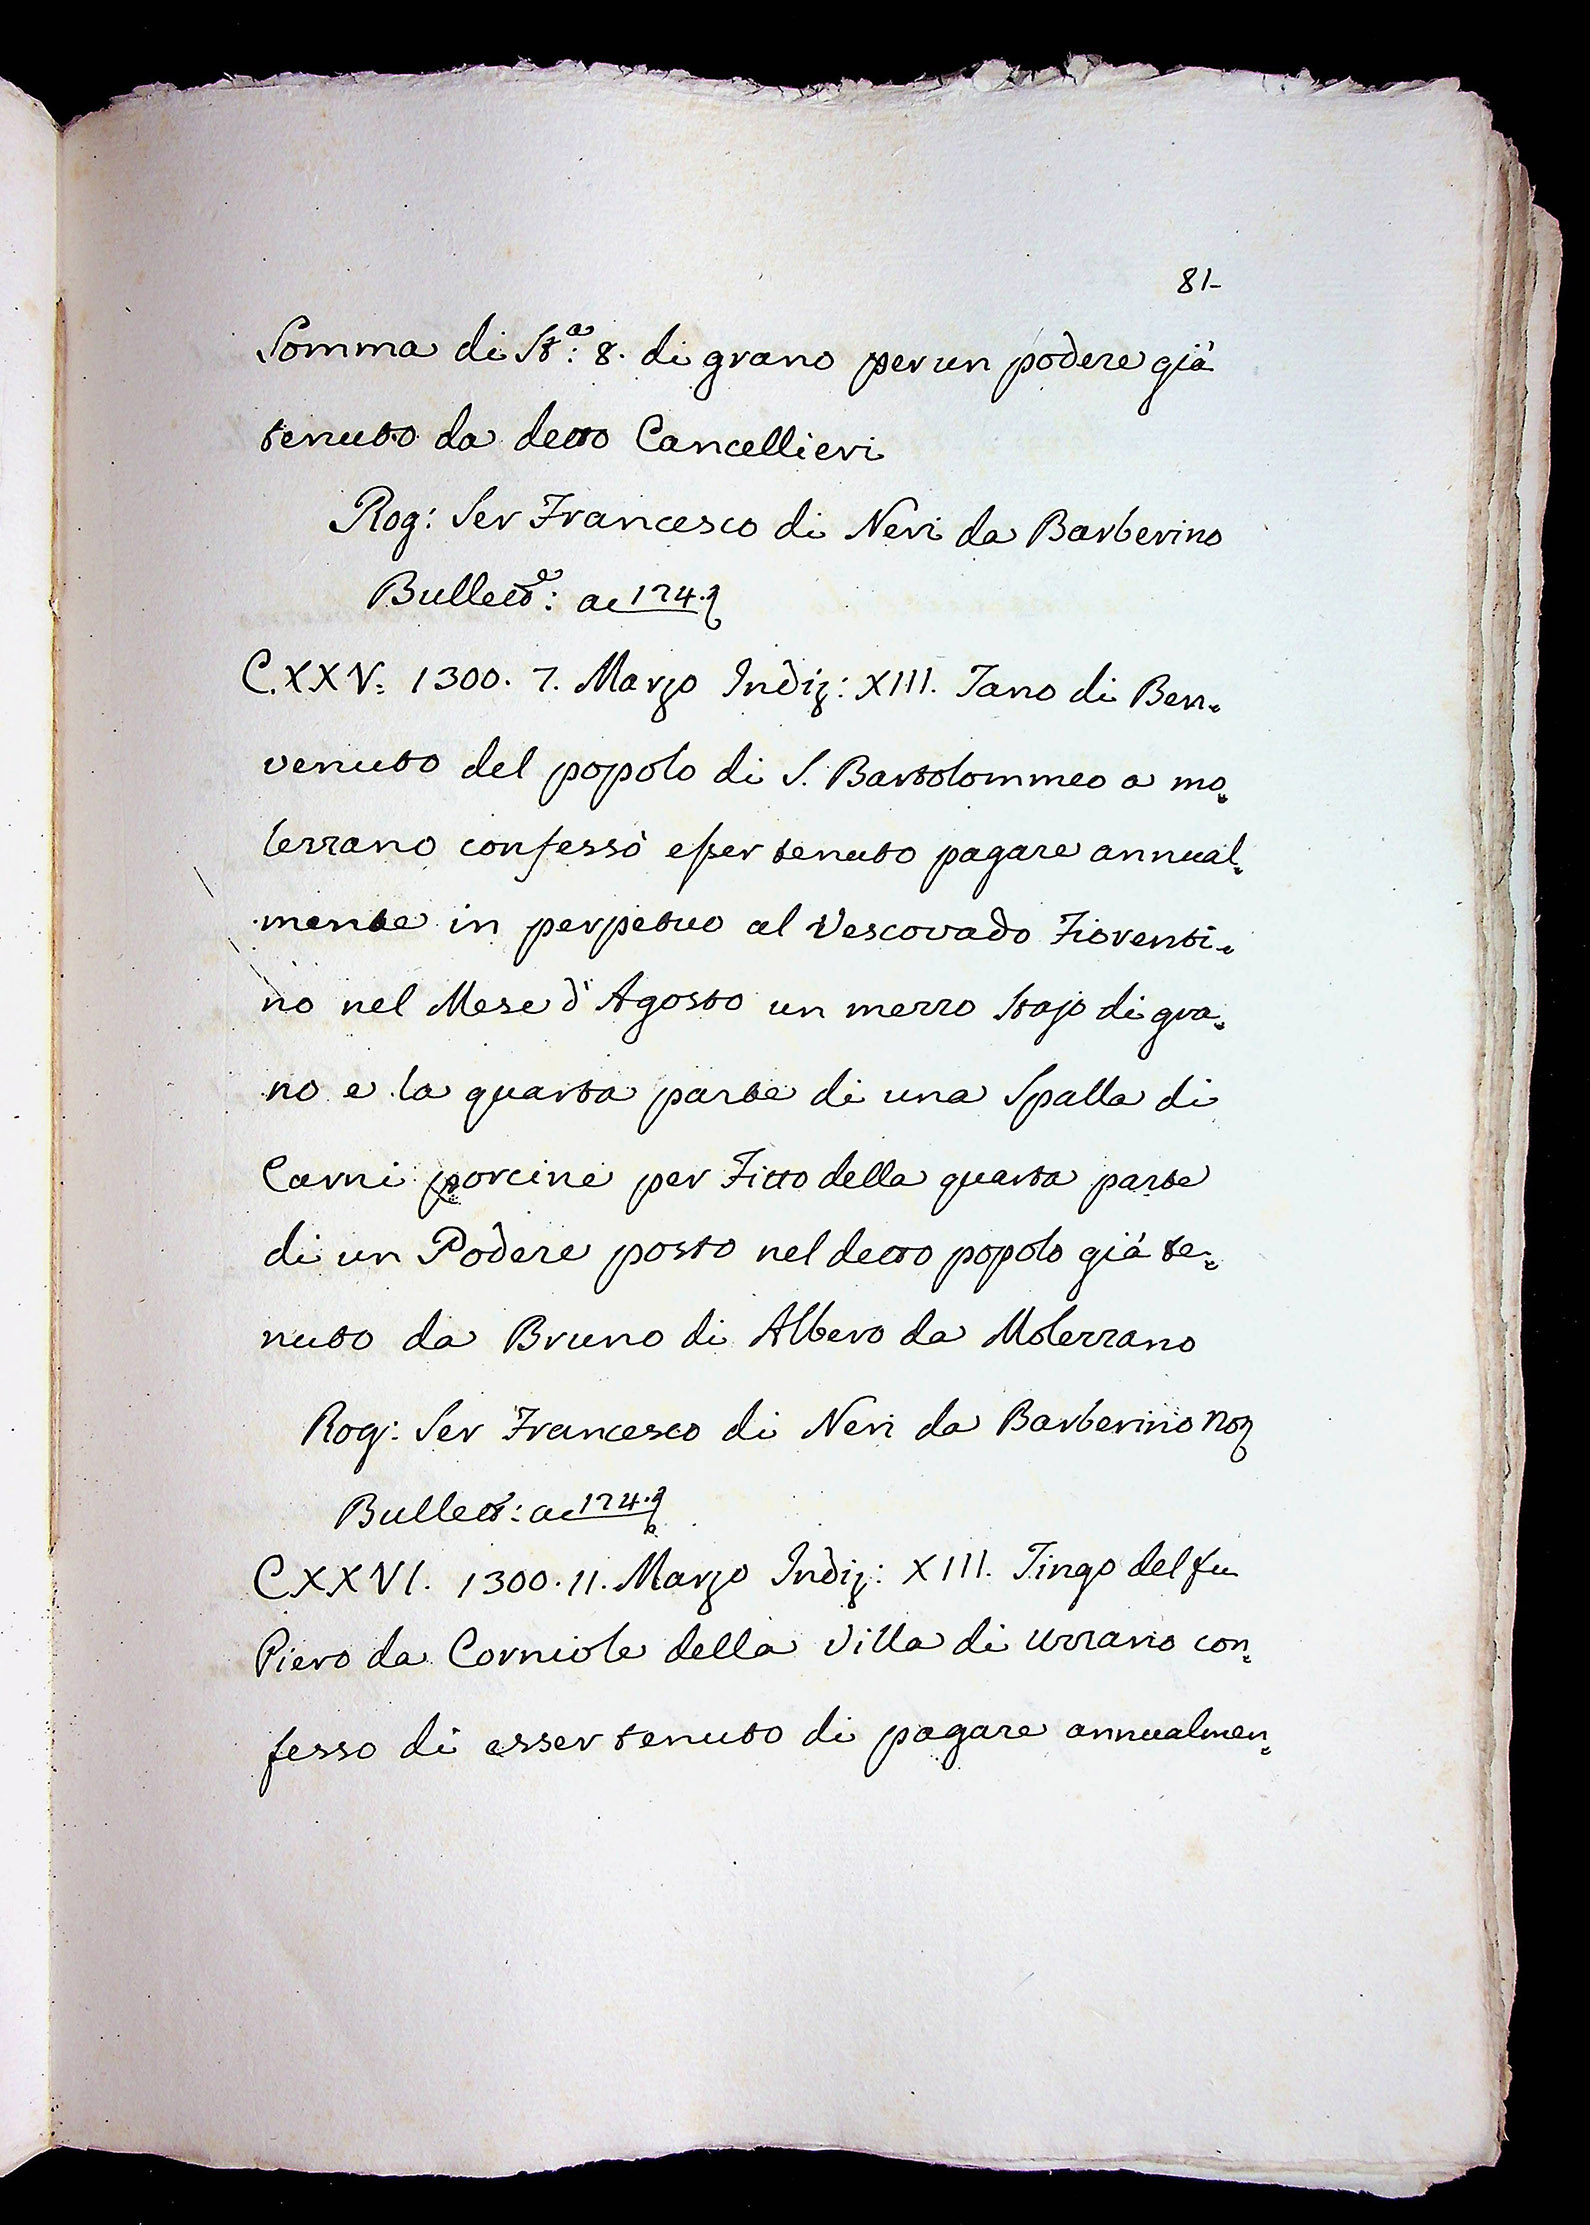 81
Somma di St.ª: 8. di grano per un podere già
tenuto da detto Cancellieri
Rog: Ser Francesco di Neri da Barberino
Bullettº: ac 124.
C.XXV. 1300. 7. Marzo Indiz: XIII. Tano di Ben=
venuto del popolo di S. Bartolommeo a mo=
lezzano confessò esser tenuto pagare annual=
mente in perpetuo al Vescovado Fiorenti=
no nel Mese d'Agosto un mezzo stajo di gra=
no e la quarta parte di una Spalla di
Carni porcine per Fitto della quarta parte
di un Podere posto nel detto popolo già te=
nuto da Bruno di Albero da Molezzano
Rog: Ser Francesco di Neri da Barberino Noʒ
Bullett: ac 124.
CXXVI. 1300. 11. Marzo Indiz: XIII. Tingo del fu
Piero da Corniole della Villa di Uzzano con=
fesso di esser tenuto di pagare annualmen=